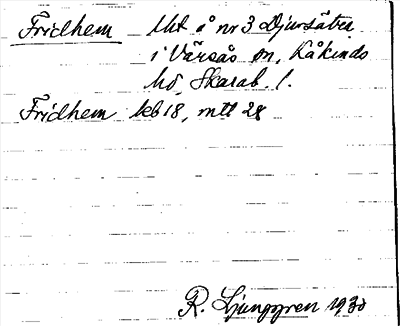 Fridhem Utt å nr 3 Djursätra
i Värsås sn, Kåkinds
hd, Skarab. l.
Fridhem kb 18, mtl 28
R. Ljunggren 1930